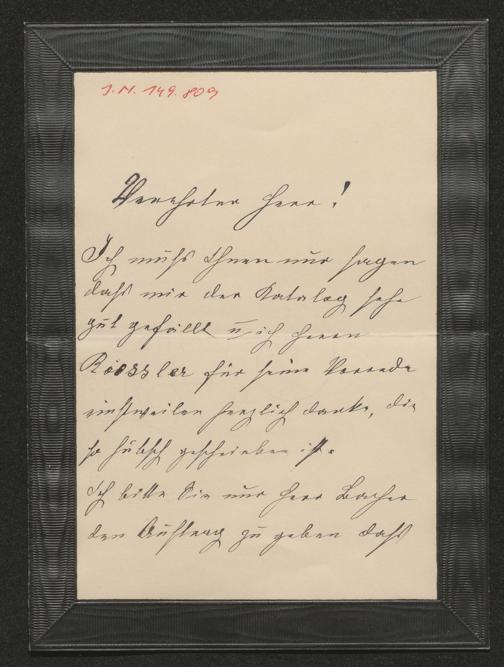 J.N. 149.809
Verehrter Herr!
Ich muß Ihnen nur sagen
daß mir der Katalog sehr
gut gefällt u ich Herrn
Roessler für seine Vorrede
einstweilen herzlich danke, die
so hübsch geschrieben ist.
Ich bitte Sie nur Herr Bacher
den Auftrag zu geben daß